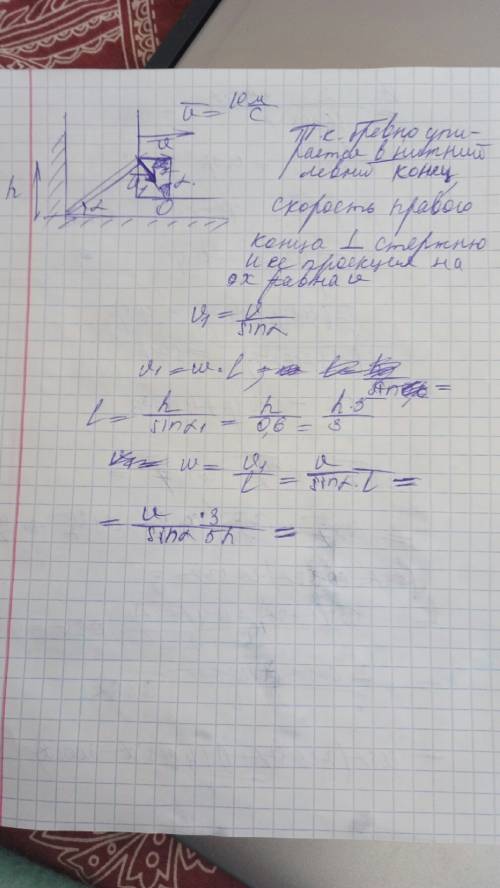 v = 10 м/с
v
h
v₁
α
α
O
Т.к. бревно упи-
рается в нижний
левый конец,
скорость правого
конца ⊥ стержню
и её проекция на
ox равна v
v₁ = v/sinα
v₁ = w·l;
l = h/sinα₁ = h/0,6 = h·5/3
w = v₁/l = v/sinα·l =
= v·3/sinα 5h =